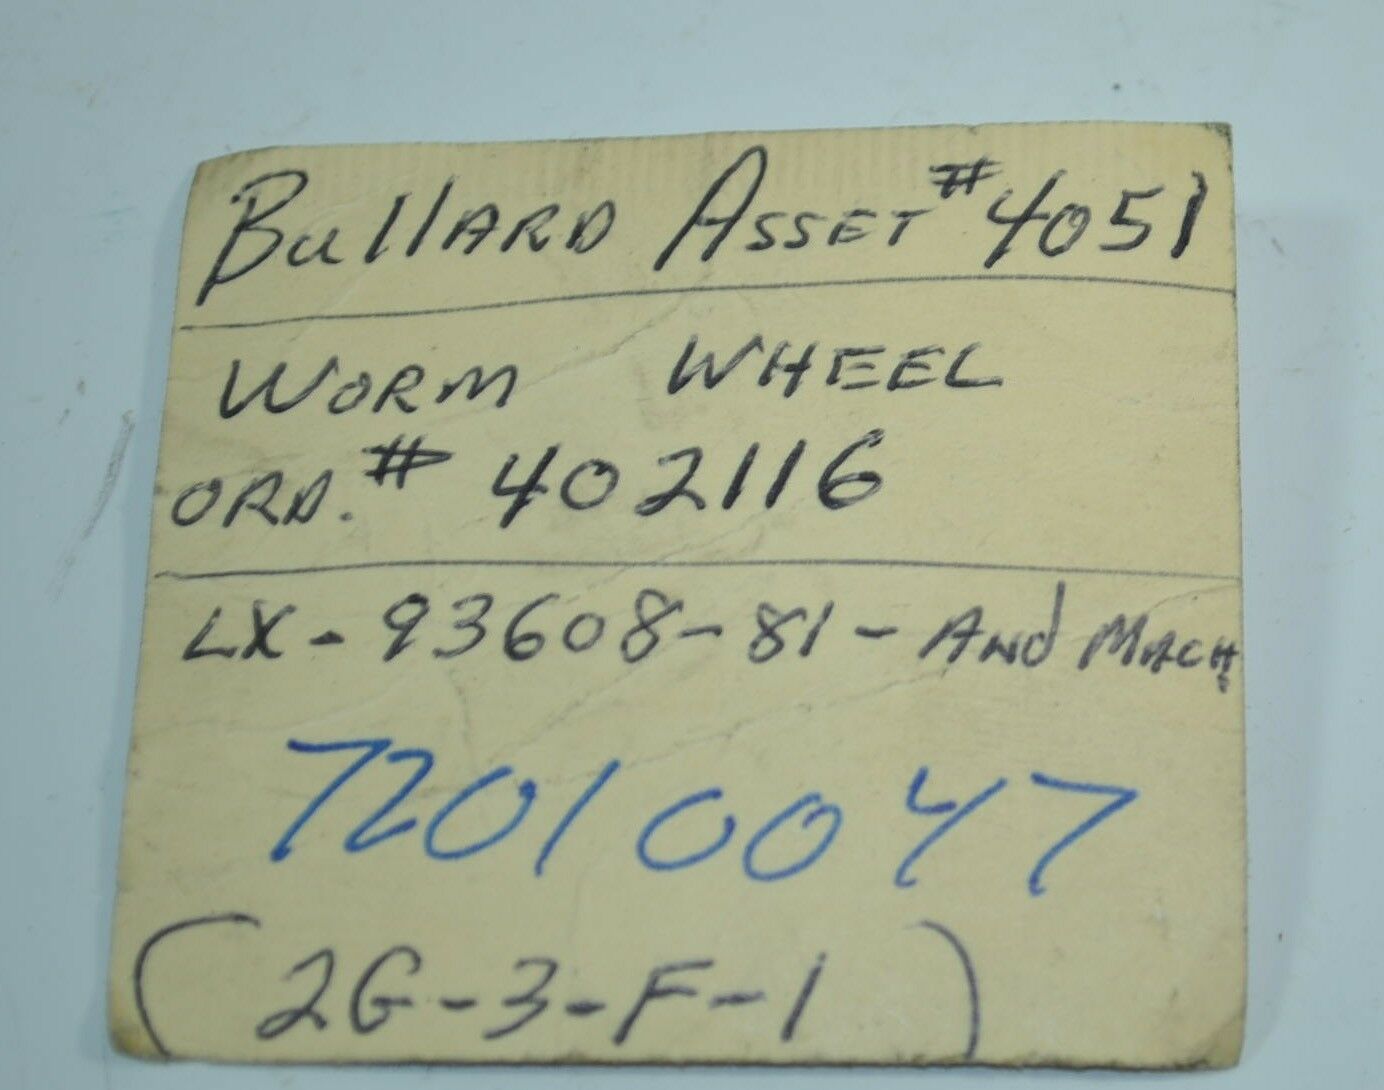 Bullard Asset #4051
WORM WHEEL
ORD. # 402116
LX-93608-81-And MACH.
72010047
(2G-3-F-1)